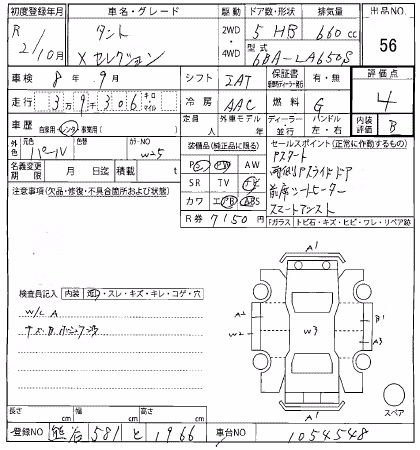 初度登録年月 車名・グレード 駆動 ドア数・形状 排気量 出品NO.
R 2/10月 タント Xセレクション 2WD・4WD 5 HB 660cc 56
型式 6BA-LA650S
車検 8年 9月 シフト IAT 保証書 有・無 評価点 4
走行 3万9千306 キロ・マイル 冷房 AAC 燃料 G
車歴 自家用・レンタ・事業用( ) 定員 人 外車モデル 年 ディーラー・並行 ハンドル 左・右 内装評価 B
外色 元色 パール 色替 カラーNO W25
名義変更期限 月 日迄 積載 t
装備品(純正品に限る)
PS PW AW
SR TV ナビ
カワ エアB ABS
R券 7150円
セールスポイント(正常に作動するもの)
Pスタート
両側Pスライドドア
前席シートヒーター
スマートアシスト
Fガラス トビ石・キズ・ヒビ・ワレ・リペア跡
注意事項(欠品・修復・不具合箇所および状態)
検査員記入 内装 込・スレ・キズ・キレ・コゲ・穴
W/L A
A1
A2 B1
W2 W3 A3
A1
スペア
長さ cm 幅 cm 高さ cm
登録NO 熊谷 581 と 1966 車台NO 1054548